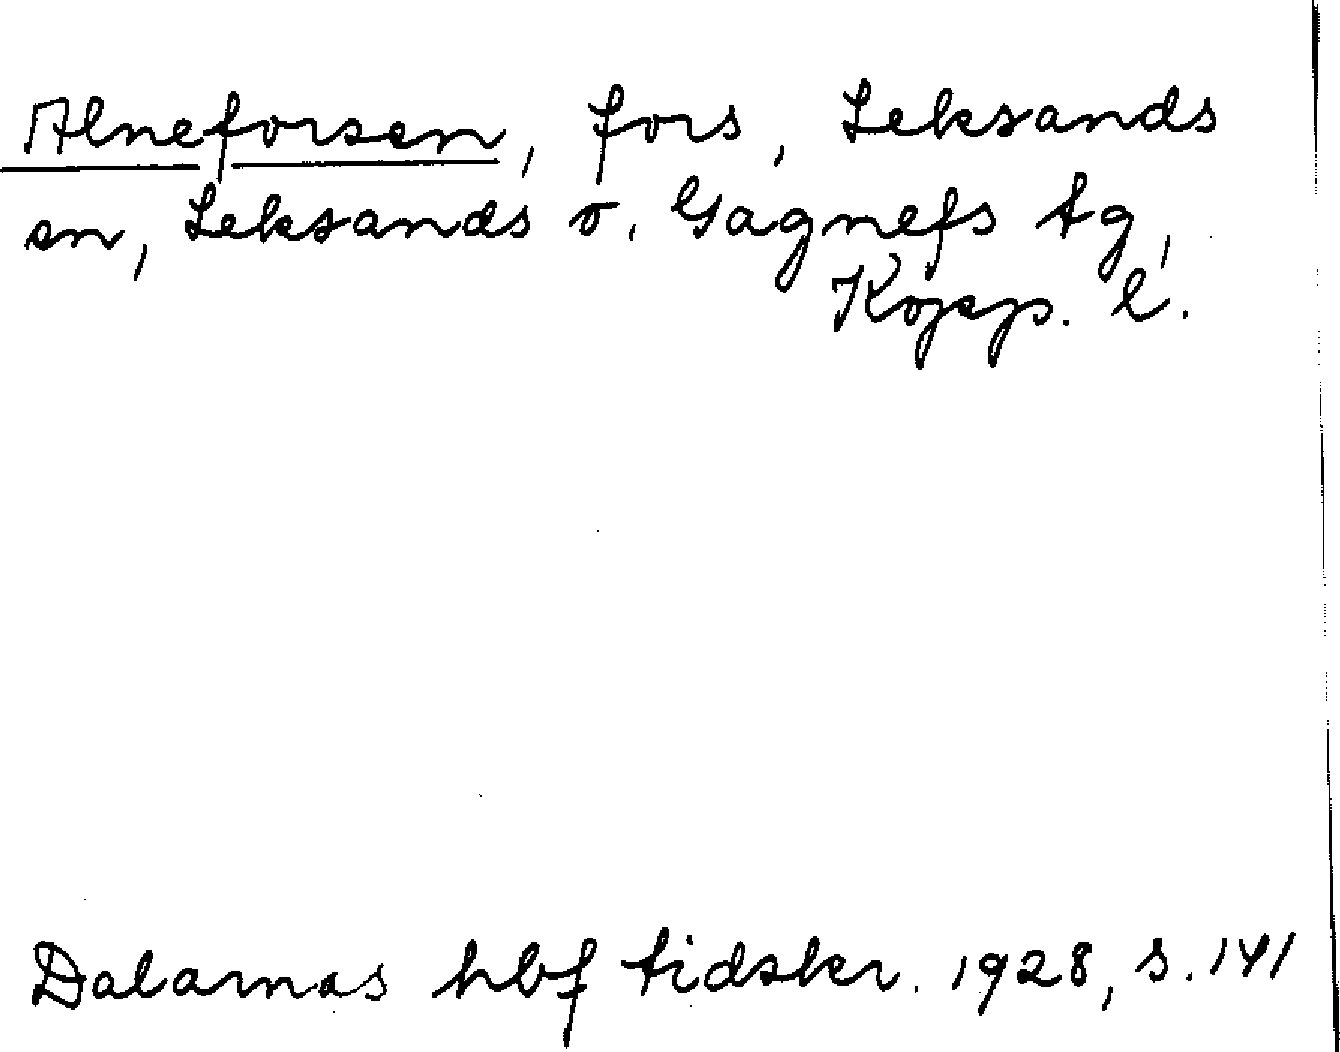 Alneforsen, fors, Leksands
sn, Leksands o. Gagnefs tg,
Kopp. l.
Dalarnas hbf tidskr. 1928, s. 141